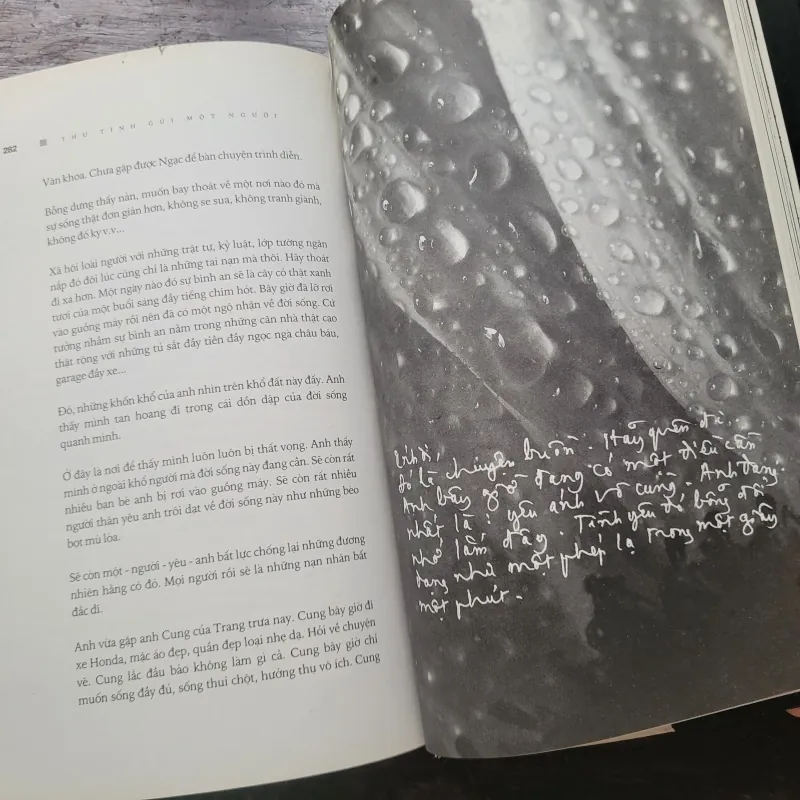 282
THƯ TÌNH GỬI MỘT NGƯỜI
Văn khoa. Chưa gặp được Ngạc để bàn chuyện trình diễn.
Bỗng dưng thấy nản, muốn bay thoát về một nơi nào đó mà
sự sống thật đơn giản hơn, không se sua, không tranh giành,
không đố kỵ v.v...
Xã hội loài người với những trật tự, kỷ luật, lớp tường ngăn
nắp đó đôi lúc cũng chỉ là những tai nạn mà thôi. Hãy thoát
đi xa hơn. Một ngày nào đó sự bình an sẽ là cây cỏ thật xanh
tươi của một buổi sáng đầy tiếng chim hót. Bây giờ đã lỡ rơi
vào guồng máy rồi nên đã có một ngộ nhận về đời sống. Cứ
tưởng nhầm sự bình an nằm trong những căn nhà thật cao
thật rộng với những tủ sắt đầy tiền đầy ngọc ngà châu báu,
garage đầy xe...
Đó, những khốn khổ của anh nhìn trên khổ đất này đấy. Anh
thấy mình tan hoang đi trong cái dồn dập của đời sống
quanh mình.
Ở đây là nơi để thấy mình luôn luôn bị thất vọng. Anh thấy
mình ở ngoài khổ người mà đời sống này đang cần. Sẽ còn rất
nhiều bạn bè anh bị rơi vào guồng máy. Sẽ còn rất nhiều
người thân yêu anh trôi dạt về đời sống này như những bèo
bọt mù lòa.
Sẽ còn một - người - yêu - anh bất lực chống lại những đương
nhiên hằng có đó. Mọi người rồi sẽ là những nạn nhân bất
đắc dĩ.
Anh vừa gặp anh Cung của Trang trưa nay. Cung bây giờ đi
xe Honda, mặc áo đẹp, quần đẹp loại nhẹ dạ. Hỏi về chuyện
vẽ. Cung lắc đầu bảo không làm gì cả. Cung bây giờ chỉ
muốn sống đầy đủ, sống thui chột, hưởng thụ vô ích. Cung
đó là chuyện buồn. Hãy quên đi.
Anh bây giờ đang có một điều cần
nhất là: yêu ánh vô cùng. Anh đang
nhớ lắm đây. Tình yêu đó bỗng
như một phép lạ trong một giây
một phút.